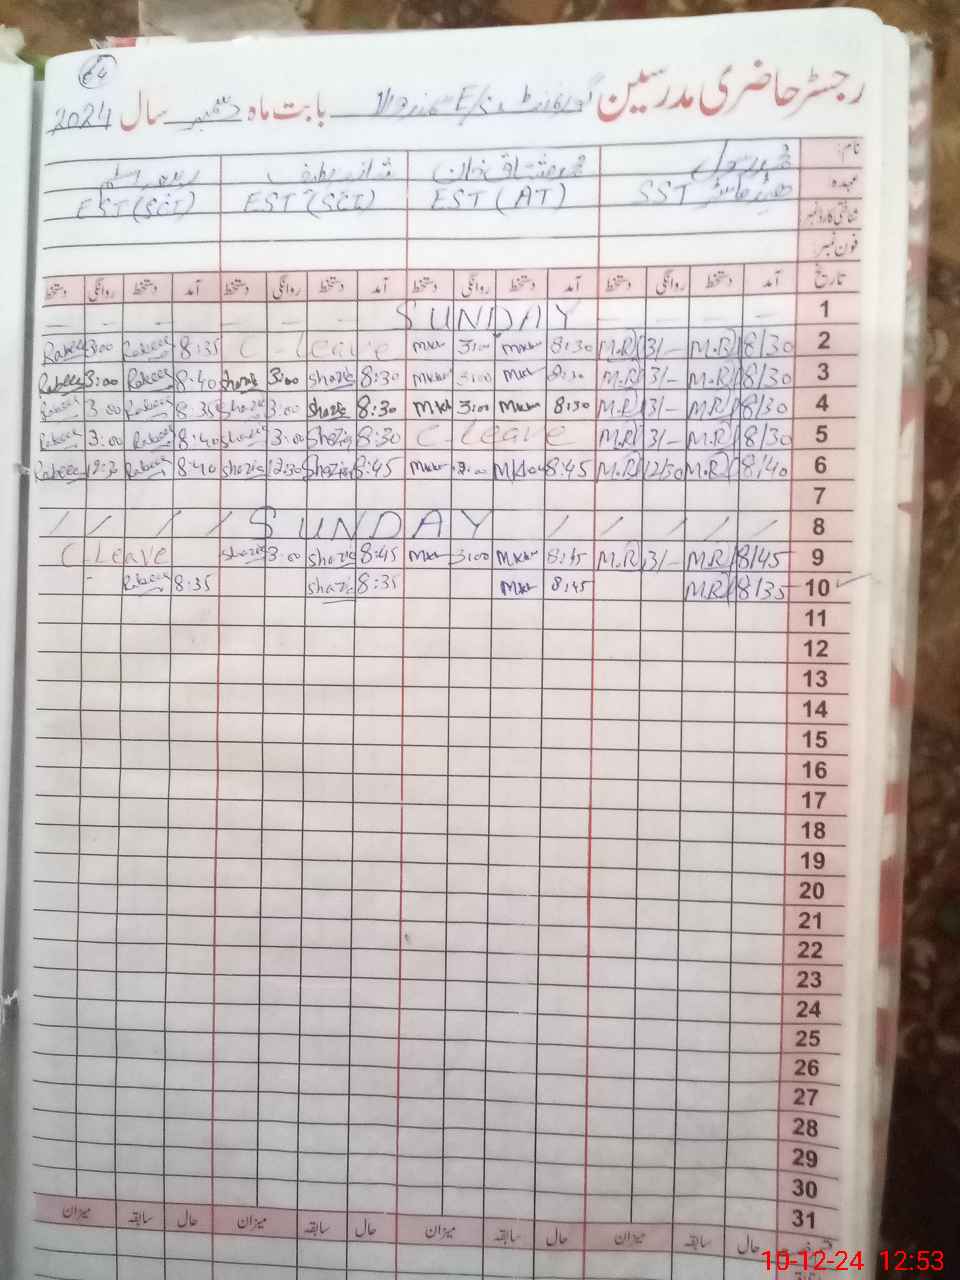 64
رجسٹر حاضری مدرسین گورنمنٹ E/S بابت ماہ دسمبر سال 2024
نام:
عہدہ: SST ہیڈماسٹر EST (AT) EST (SCI) EST (SCI)
شناختی کارڈ نمبر
فون نمبر:
تاریخ آمد دستخط روانگی دستخط آمد دستخط روانگی دستخط آمد دستخط روانگی دستخط آمد دستخط روانگی دستخط
— — — — — — SUNDAY — — — — 1
Rabeea 3:00 Rabeea 8:35 C - Leave Mkh 3:00 Mkh 8:30 M.R 3/- M.R 8/30 2
Rabeea 3:00 Rabeea 8:40 Shazia 3:00 Shazia 8:30 Mkh 3:00 Mkh 8:30 M.R 3/- M.R 8/30 3
Rabeea 3:00 Rabeea 8:35 Shazia 3:00 Shazia 8:30 Mkh 3:00 Mkh 8:30 M.R 3/- M.R 8/30 4
Rabeea 3:00 Rabeea 8:40 Shazia 3:00 Shazia 8:30 C-Leave M.R 3/- M.R 8/30 5
Rabeea 12:30 Rabeea 8:40 Shazia 12:30 Shazia 8:45 Mkh Mkh 8:45 M.R 12/30 M.R 8/40 6
7
/ / / / SUNDAY / / / / / / 8
C Leave Shazia 3:00 Shazia 8:45 Mkh 3:00 Mkh 8:45 M.R 3/- M.R 8/45 9
Rabeea 8:35 Shazia 8:35 Mkh 8:45 M.R 8/35 10
11
12
13
14
15
16
17
18
19
20
21
22
23
24
25
26
27
28
29
30
31
حال سابقہ میزان حال سابقہ میزان حال سابقہ میزان حال سابقہ میزان
10-12-24 12:53